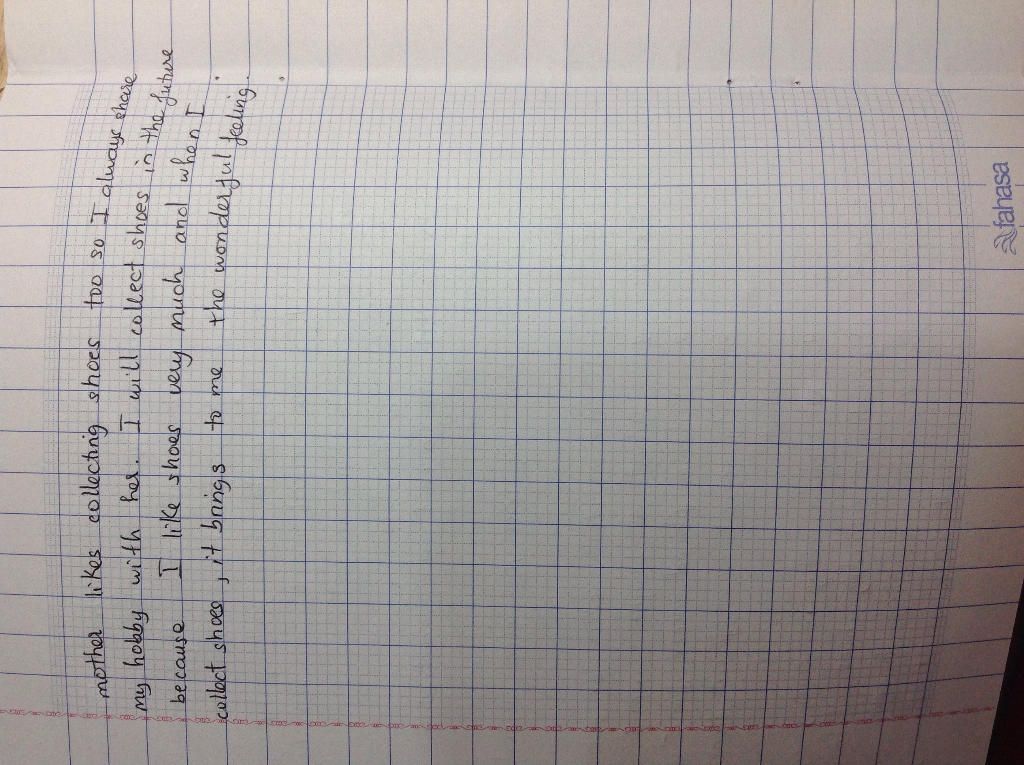 mother likes collecting shoes too so I always share
my hobby with her. I will collect shoes in the future
because I like shoes very much and when I
collect shoes, it brings to me the wonderful feeling.
fahasa